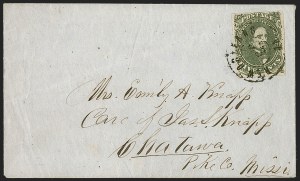 Mrs. Emily A Knapp
Care of Jas. Knapp
Chatawa.
Pike Co. Missi.